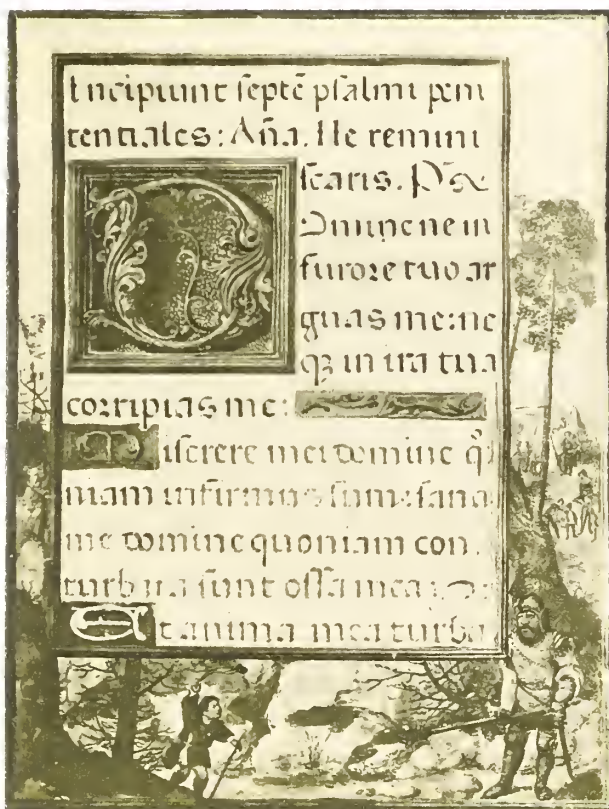 Incipiunt septē psalmi peni
tentiales: Aña. Ne remini
scaris. Ps
Domine ne in
furore tuo ar
guas me: ne
qꝫ in ira tua
corripias me:
Miserere mei domine qm̄
niam infirmus sum: sana
me domine quoniam con
turbata sunt ossa mea:
Et anima mea turba